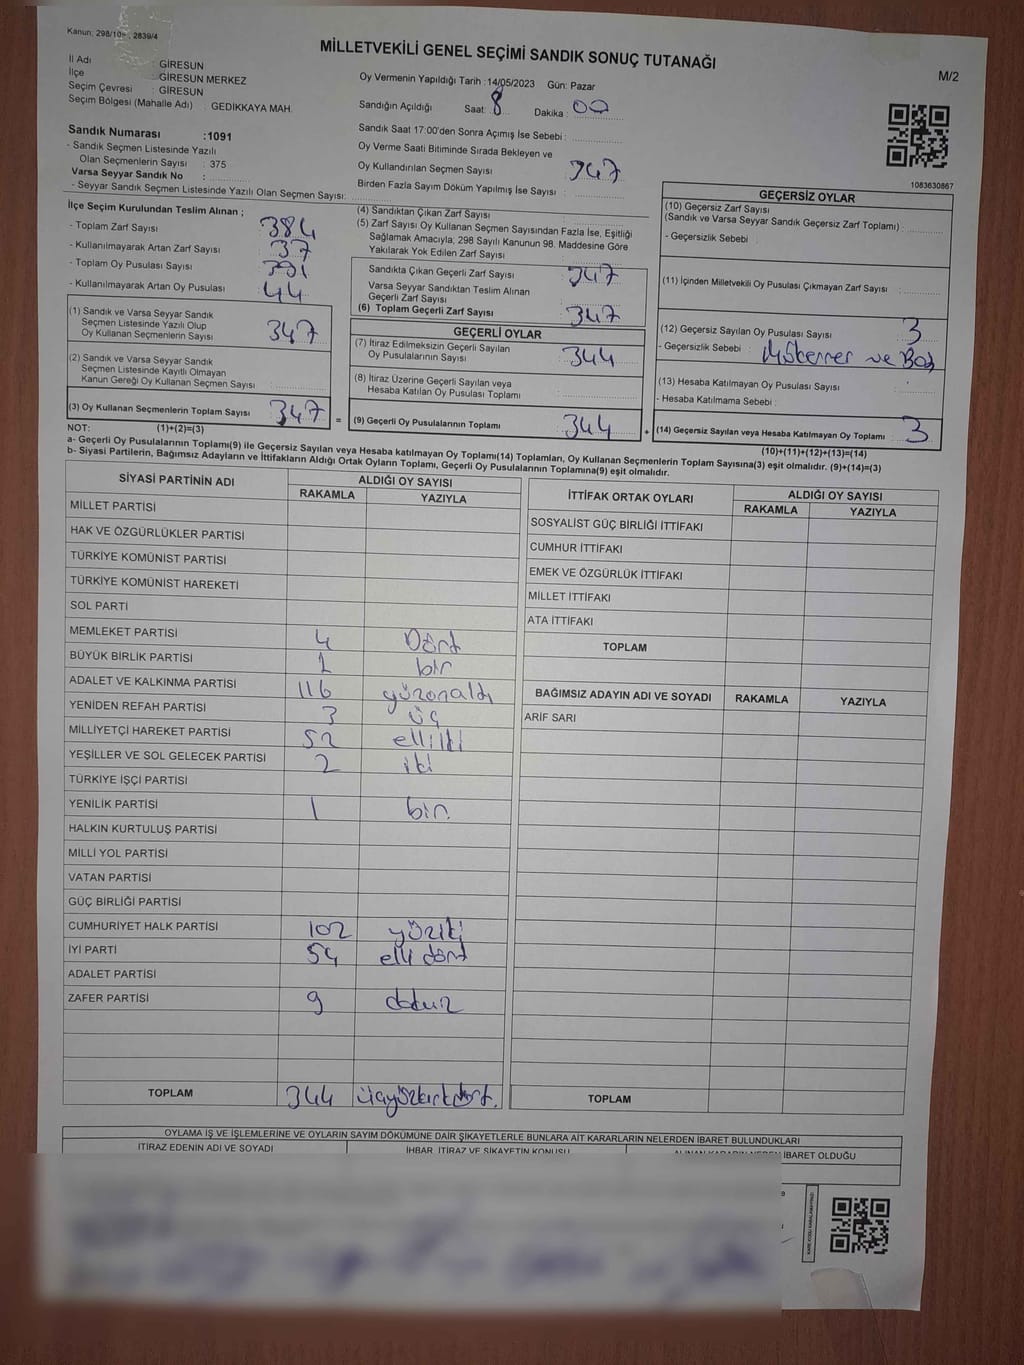 Kanun: 298/105, 2839/4
MİLLETVEKİLİ GENEL SEÇİMİ SANDIK SONUÇ TUTANAĞI
M/2
İl Adı : GİRESUN
İlçe : GİRESUN MERKEZ
Seçim Çevresi : GİRESUN
Seçim Bölgesi (Mahalle Adı) : GEDİKKAYA MAH.
Sandık Numarası :1091
- Sandık Seçmen Listesinde Yazılı
Olan Seçmenlerin Sayısı : 375
Varsa Seyyar Sandık No :
- Seyyar Sandık Seçmen Listesinde Yazılı Olan Seçmen Sayısı:
Oy Vermenin Yapıldığı Tarih :14/05/2023 Gün: Pazar
Sandığın Açıldığı Saat: 8 Dakika : 00
Sandık Saat 17:00'den Sonra Açımış İse Sebebi :
Oy Verme Saati Bitiminde Sırada Bekleyen ve
Oy Kullandırılan Seçmen Sayısı 347
Birden Fazla Sayım Döküm Yapılmış İse Sayısı :
1083630867
İlçe Seçim Kurulundan Teslim Alınan ;
- Toplam Zarf Sayısı 384
- Kullanılmayarak Artan Zarf Sayısı : 37
- Toplam Oy Pusulası Sayısı : 391
- Kullanılmayarak Artan Oy Pusulası : 44
(1) Sandık ve Varsa Seyyar Sandık
Seçmen Listesinde Yazılı Olup
Oy Kullanan Seçmenlerin Sayısı 347
(2) Sandık ve Varsa Seyyar Sandık
Seçmen Listesinde Kayıtlı Olmayan
Kanun Gereği Oy Kullanan Seçmen Sayısı :
(3) Oy Kullanan Seçmenlerin Toplam Sayısı 347 =
(4) Sandıktan Çıkan Zarf Sayısı
(5) Zarf Sayısı Oy Kullanan Seçmen Sayısından Fazla İse, Eşitliği
Sağlamak Amacıyla, 298 Sayılı Kanunun 98. Maddesine Göre
Yakılarak Yok Edilen Zarf Sayısı :
Sandıkta Çıkan Geçerli Zarf Sayısı : 347
Varsa Seyyar Sandıktan Teslim Alınan
Geçerli Zarf Sayısı :
(6) Toplam Geçerli Zarf Sayısı : 347
GEÇERLİ OYLAR
(7) İtiraz Edilmeksizin Geçerli Sayılan
Oy Pusulalarının Sayısı : 344
(8) İtiraz Üzerine Geçerli Sayılan veya
Hesaba Katılan Oy Pusulası Toplamı :
(9) Geçerli Oy Pusulalarının Toplamı 344 +
GEÇERSİZ OYLAR
(10) Geçersiz Zarf Sayısı
(Sandık ve Varsa Seyyar Sandık Geçersiz Zarf Toplamı) :
- Geçersizlik Sebebi :
(11) İçinden Milletvekili Oy Pusulası Çıkmayan Zarf Sayısı :
(12) Geçersiz Sayılan Oy Pusulası Sayısı : 3
- Geçersizlik Sebebi : Mükerrer ve Boş
(13) Hesaba Katılmayan Oy Pusulası Sayısı :
- Hesaba Katılmama Sebebi :
(14) Geçersiz Sayılan veya Hesaba Katılmayan Oy Toplamı 3
NOT: (1)+(2)=(3) (10)+(11)+(12)+(13)=(14)
a- Geçerli Oy Pusulalarının Toplamı(9) ile Geçersiz Sayılan veya Hesaba katılmayan Oy Toplamı(14) Toplamları, Oy Kullanan Seçmenlerin Toplam Sayısına(3) eşit olmalıdır. (9)+(14)=(3)
b- Siyasi Partilerin, Bağımsız Adayların ve İttifakların Aldığı Ortak Oyların Toplamı, Geçerli Oy Pusulalarının Toplamına(9) eşit olmalıdır.
SİYASİ PARTİNİN ADI ALDIĞI OY SAYISI
RAKAMLA YAZIYLA
MİLLET PARTİSİ
HAK VE ÖZGÜRLÜKLER PARTİSİ
TÜRKİYE KOMÜNİST PARTİSİ
TÜRKİYE KOMÜNİST HAREKETİ
SOL PARTİ
MEMLEKET PARTİSİ 4 Dört
BÜYÜK BİRLİK PARTİSİ 1 bir
ADALET VE KALKINMA PARTİSİ 116 yüzonaltı
YENİDEN REFAH PARTİSİ 3 üç
MİLLİYETÇİ HAREKET PARTİSİ 52 elliiki
YEŞİLLER VE SOL GELECEK PARTİSİ 2 iki
TÜRKİYE İŞÇİ PARTİSİ
YENİLİK PARTİSİ 1 bir.
HALKIN KURTULUŞ PARTİSİ
MİLLİ YOL PARTİSİ
VATAN PARTİSİ
GÜÇ BİRLİĞİ PARTİSİ
CUMHURİYET HALK PARTİSİ 102 yüziki
İYİ PARTİ 54 elli dört
ADALET PARTİSİ
ZAFER PARTİSİ 9 dokuz
TOPLAM 344 üçyüzkırkdört.
İTTİFAK ORTAK OYLARI ALDIĞI OY SAYISI
RAKAMLA YAZIYLA
SOSYALİST GÜÇ BİRLİĞİ İTTİFAKI
CUMHUR İTTİFAKI
EMEK VE ÖZGÜRLÜK İTTİFAKI
MİLLET İTTİFAKI
ATA İTTİFAKI
TOPLAM
BAĞIMSIZ ADAYIN ADI VE SOYADI RAKAMLA YAZIYLA
ARİF SARI
TOPLAM
OYLAMA İŞ VE İŞLEMLERİNE VE OYLARIN SAYIM DÖKÜMÜNE DAİR ŞİKAYETLERLE BUNLARA AİT KARARLARIN NELERDEN İBARET BULUNDUKLARI
İTİRAZ EDENİN ADI VE SOYADI İHBAR, İTİRAZ VE ŞİKAYETİN KONUSU ALINAN KARARIN NEDEN İBARET OLDUĞU